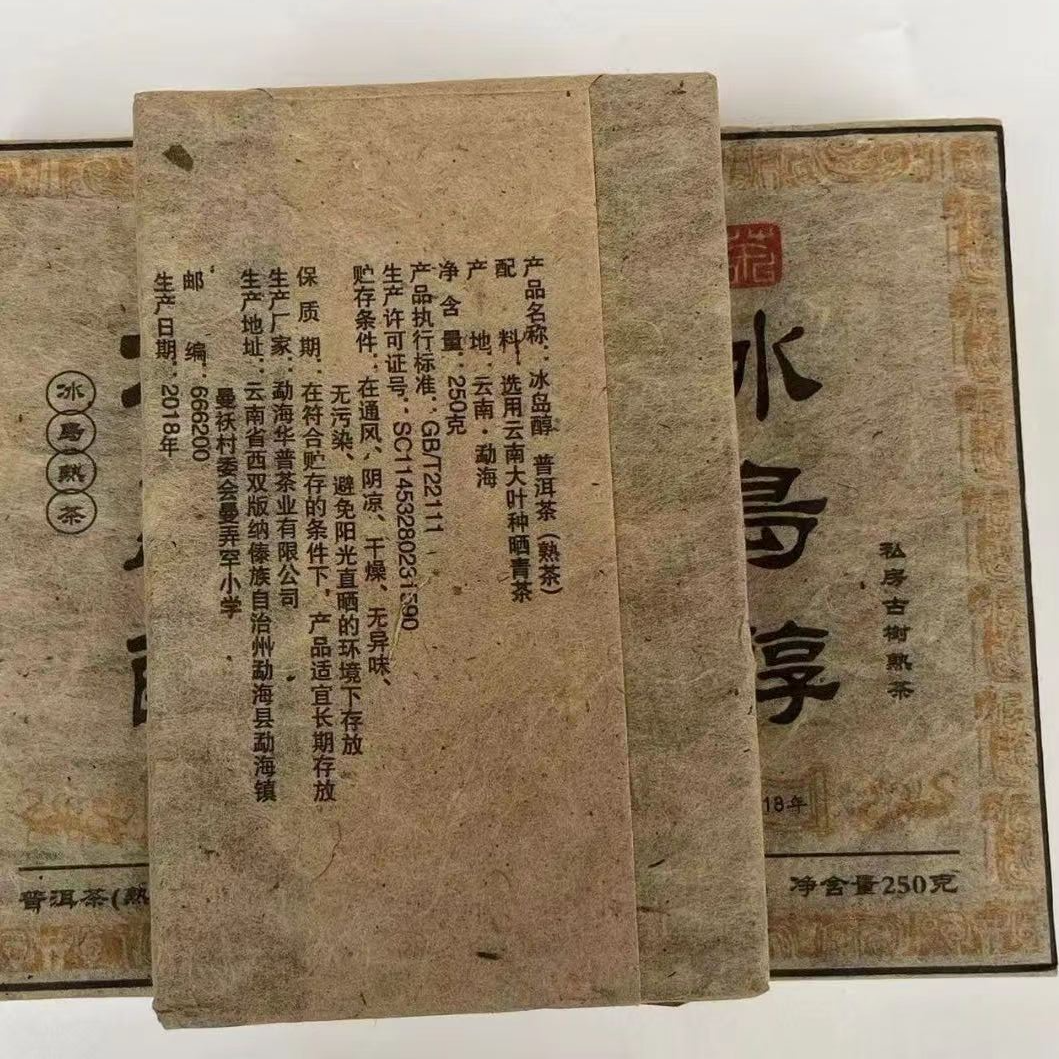 产品名称：冰岛醇 普洱茶（熟茶）
配 料：选用云南大叶种晒青茶
产 地：云南·勐海
净 含 量：250克
产品执行标准：GB/T22111
生产许可证号：SC11453280231590
贮存条件：在通风、阴凉、干燥、无异味、
无污染、避免阳光直晒的环境下存放
保 质 期：在符合贮存的条件下，产品适宜长期存放
生产厂家：勐海华普茶业有限公司
生产地址：云南省西双版纳傣族自治州勐海县勐海镇
曼袄村委会曼弄罕小学
邮 编：666200
生产日期：2018年
冰岛醇
私房古树熟茶
18年
净含量250克
冰岛熟茶
普洱茶(熟